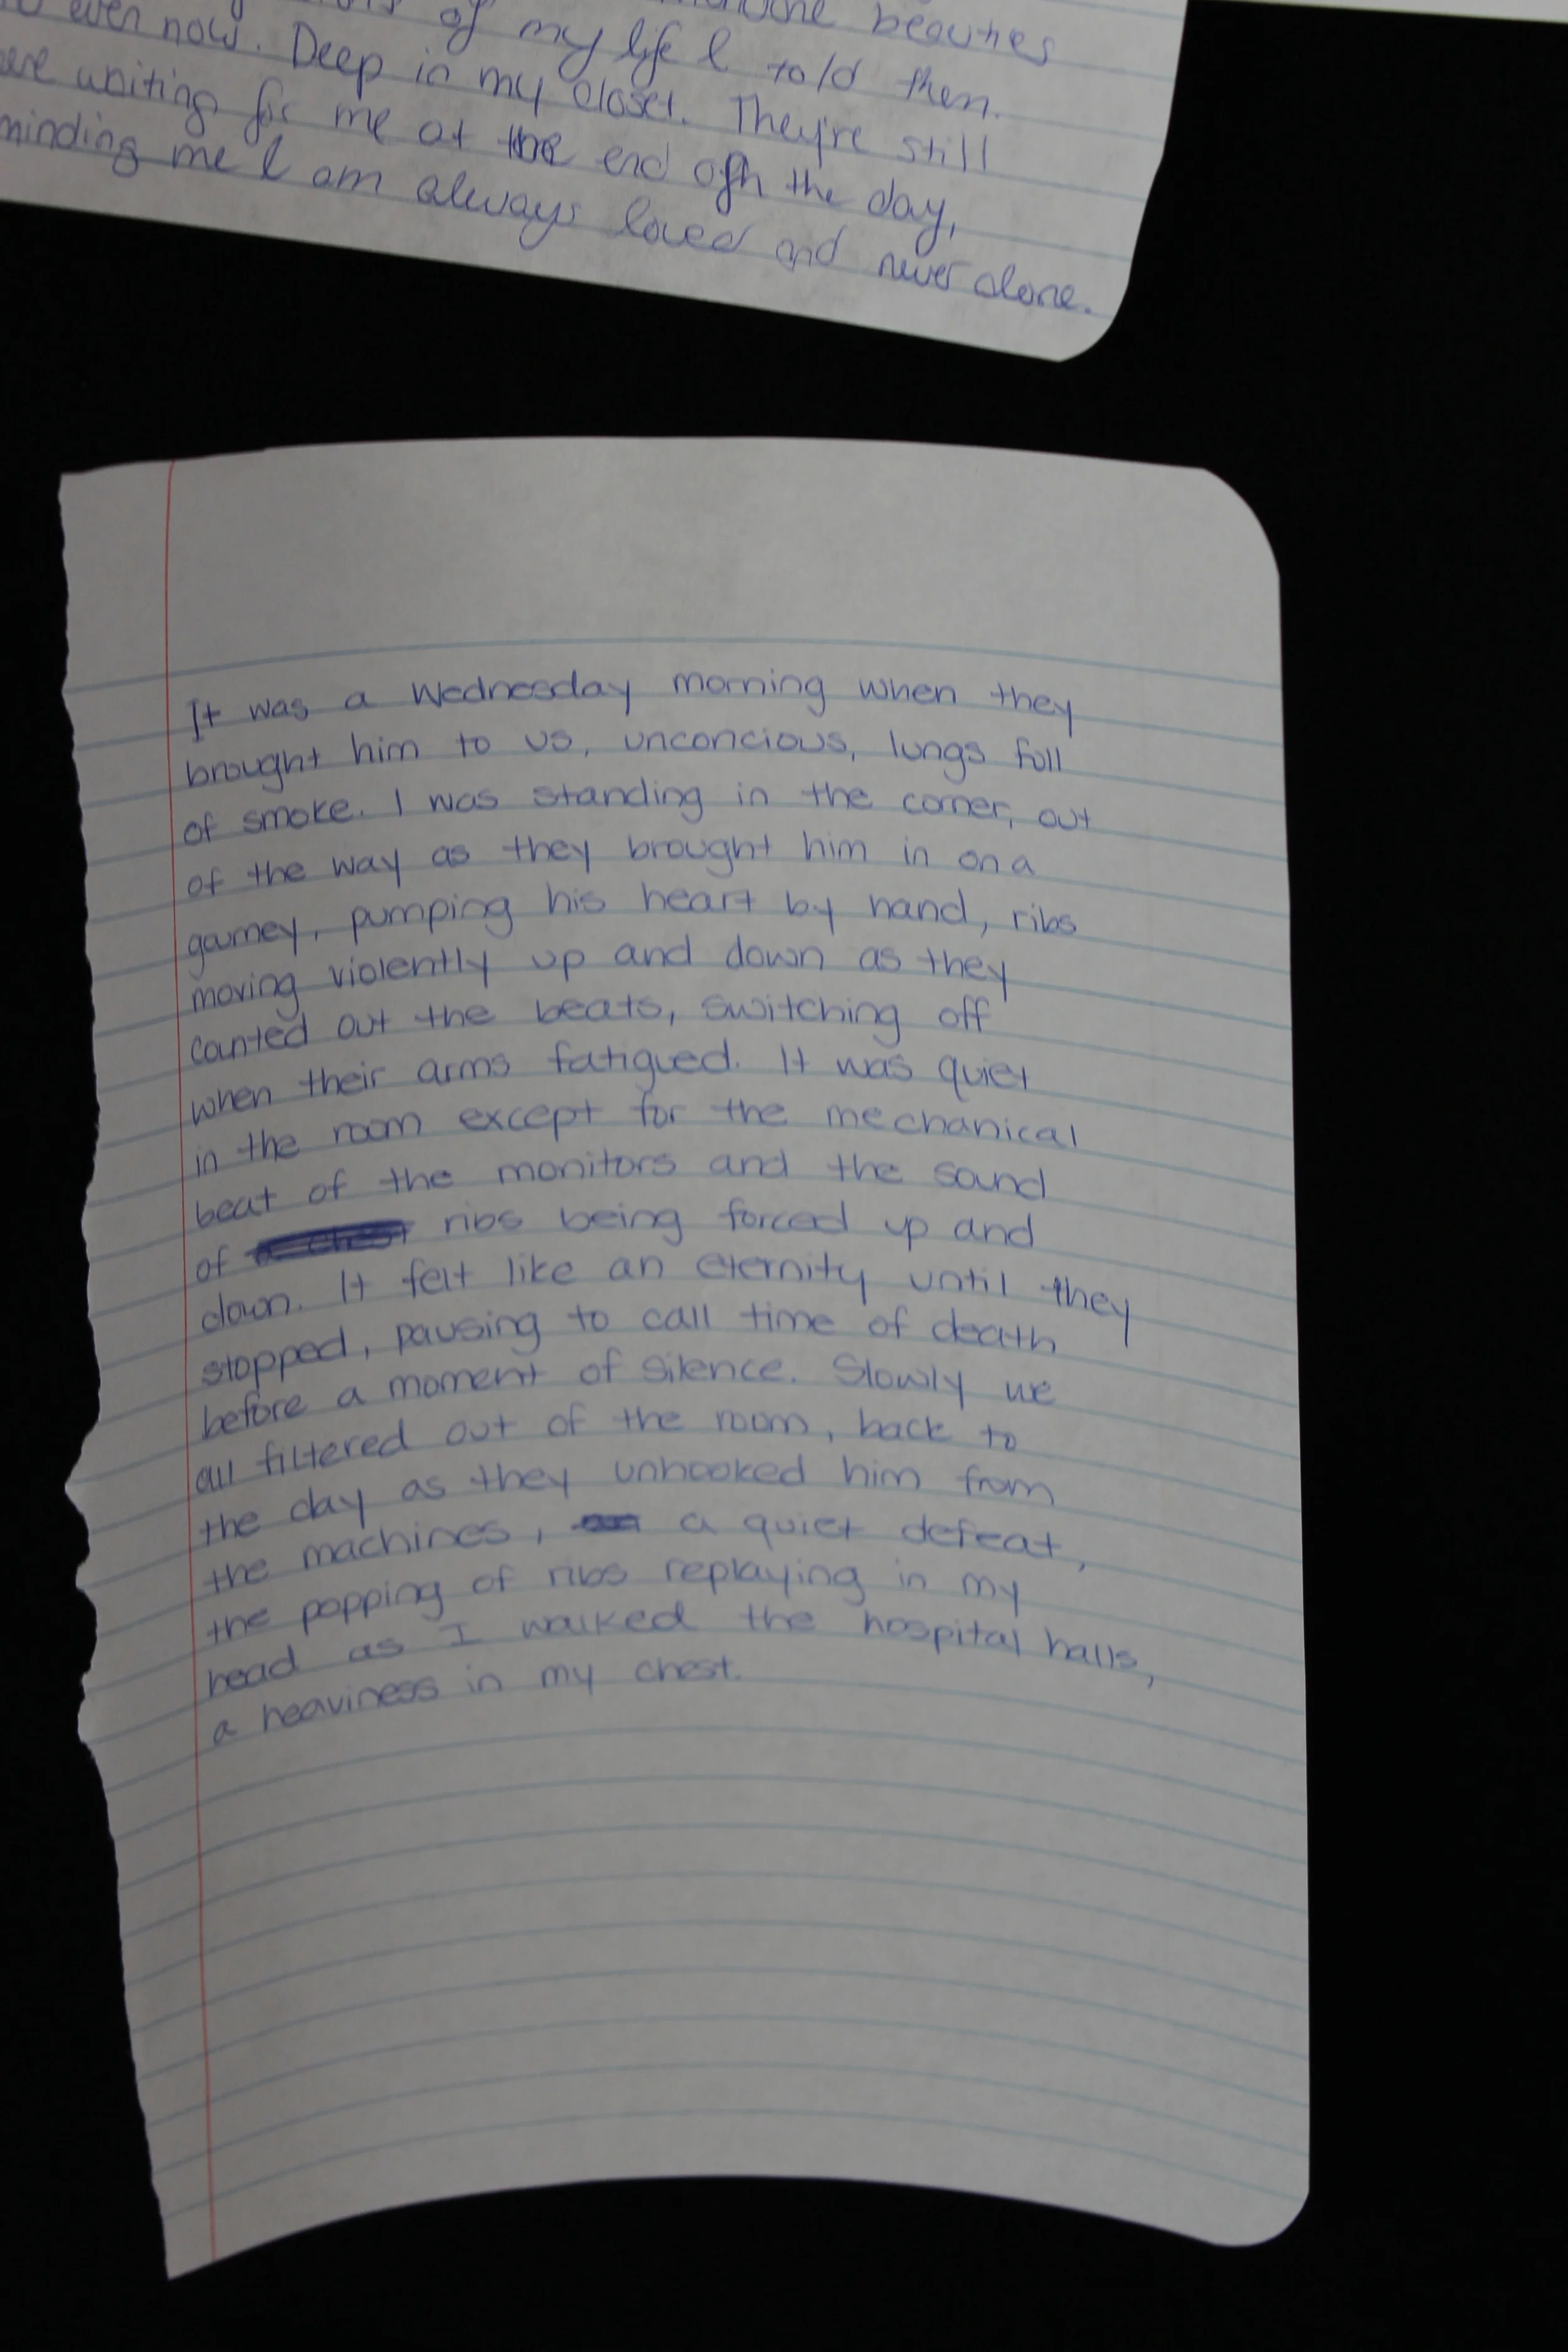 beauties
even now. of my life I told them.
Deep in my closet. They're still
waiting for me at the end ofh the day,
minding me I am always loved and never alone.
It was a Wednesday morning when they
brought him to us, unconcious, lungs full
of smoke. I was standing in the corner, out
of the way as they brought him in on a
gurney, pumping his heart by hand, ribs
moving violently up and down as they
counted out the beats, switching off
when their arms fatigued. It was quiet
in the room except for the mechanical
beat of the monitors and the sound
of ribs being forced up and
down. It felt like an eternity until they
stopped, pausing to call time of death
before a moment of silence. Slowly we
all filtered out of the room, back to
the day as they unhooked him from
the machines, a quiet defeat,
the popping of ribs replaying in my
head as I walked the hospital halls,
a heaviness in my chest.